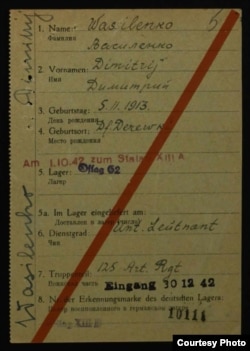 1. Name: Wasilenko
Фамилия Василенко
2. Vornamen: Dimitrij
Имя Димитрий
3. Geburtstag: 5. II. 1913.
Дата рождения
4. Geburtsort: Df. Derewk
Место рождения
Am 1.10.42 zum Stalag XIII A
5. Lager: Oflag 62
Лагерь
5a. Im Lager eingeliefert am:
Доставлен в лагерь
6. Dienstgrad: Unt. Leutnant
Чин
7. Truppenteil: 125 Art. Rgt
Eingang 30 12 42
8. Nr. der Erkennungsmarke des deutschen Lagers:
10114
Wasilenko Dimitrij
Courtesy Photo